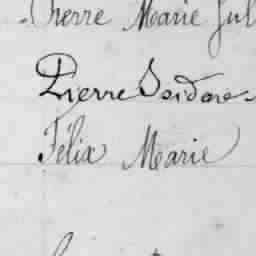 Pierre Marie Jul
Pierre Isidore
Félix Marie